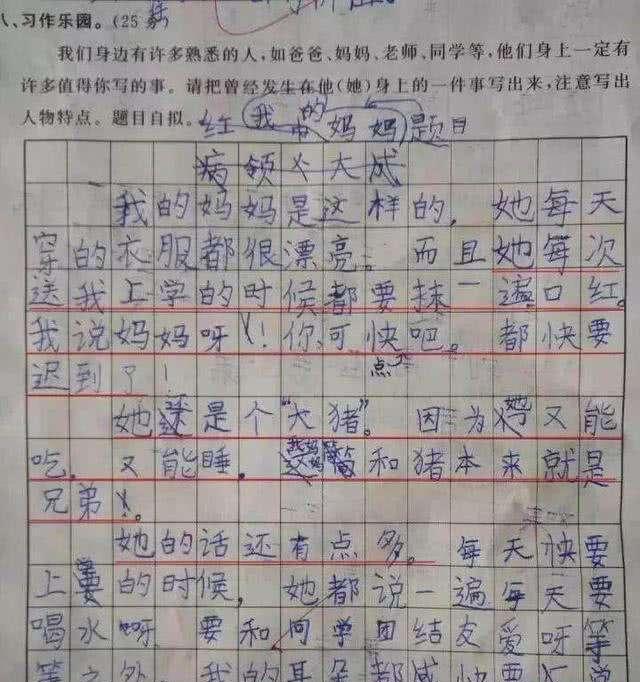 八、习作乐园。(25分)
我们身边有许多熟悉的人,如爸爸、妈妈、老师、同学等,他们身上一定有
许多值得你写的事。请把曾经发生在他(她)身上的一件事写出来,注意写出
人物特点。题目自拟。红 我的妈妈 题目
病 领 大 成
我的妈妈是这样的,她每天
穿的衣服都很漂亮。而且她每次
送我上学的时候都要抹一遍口红。
我说妈妈呀!你可快点吧。都快要
迟到了!
她还是个“大猪”。因为她又能
吃,又能睡。我妈妈和猪本来就是
兄弟。
她的话还有点多。每天快要
上学的时候,她都说一遍每天要
喝水呀 要和同学团结友爱呀等
等之外,我的耳朵都成快要